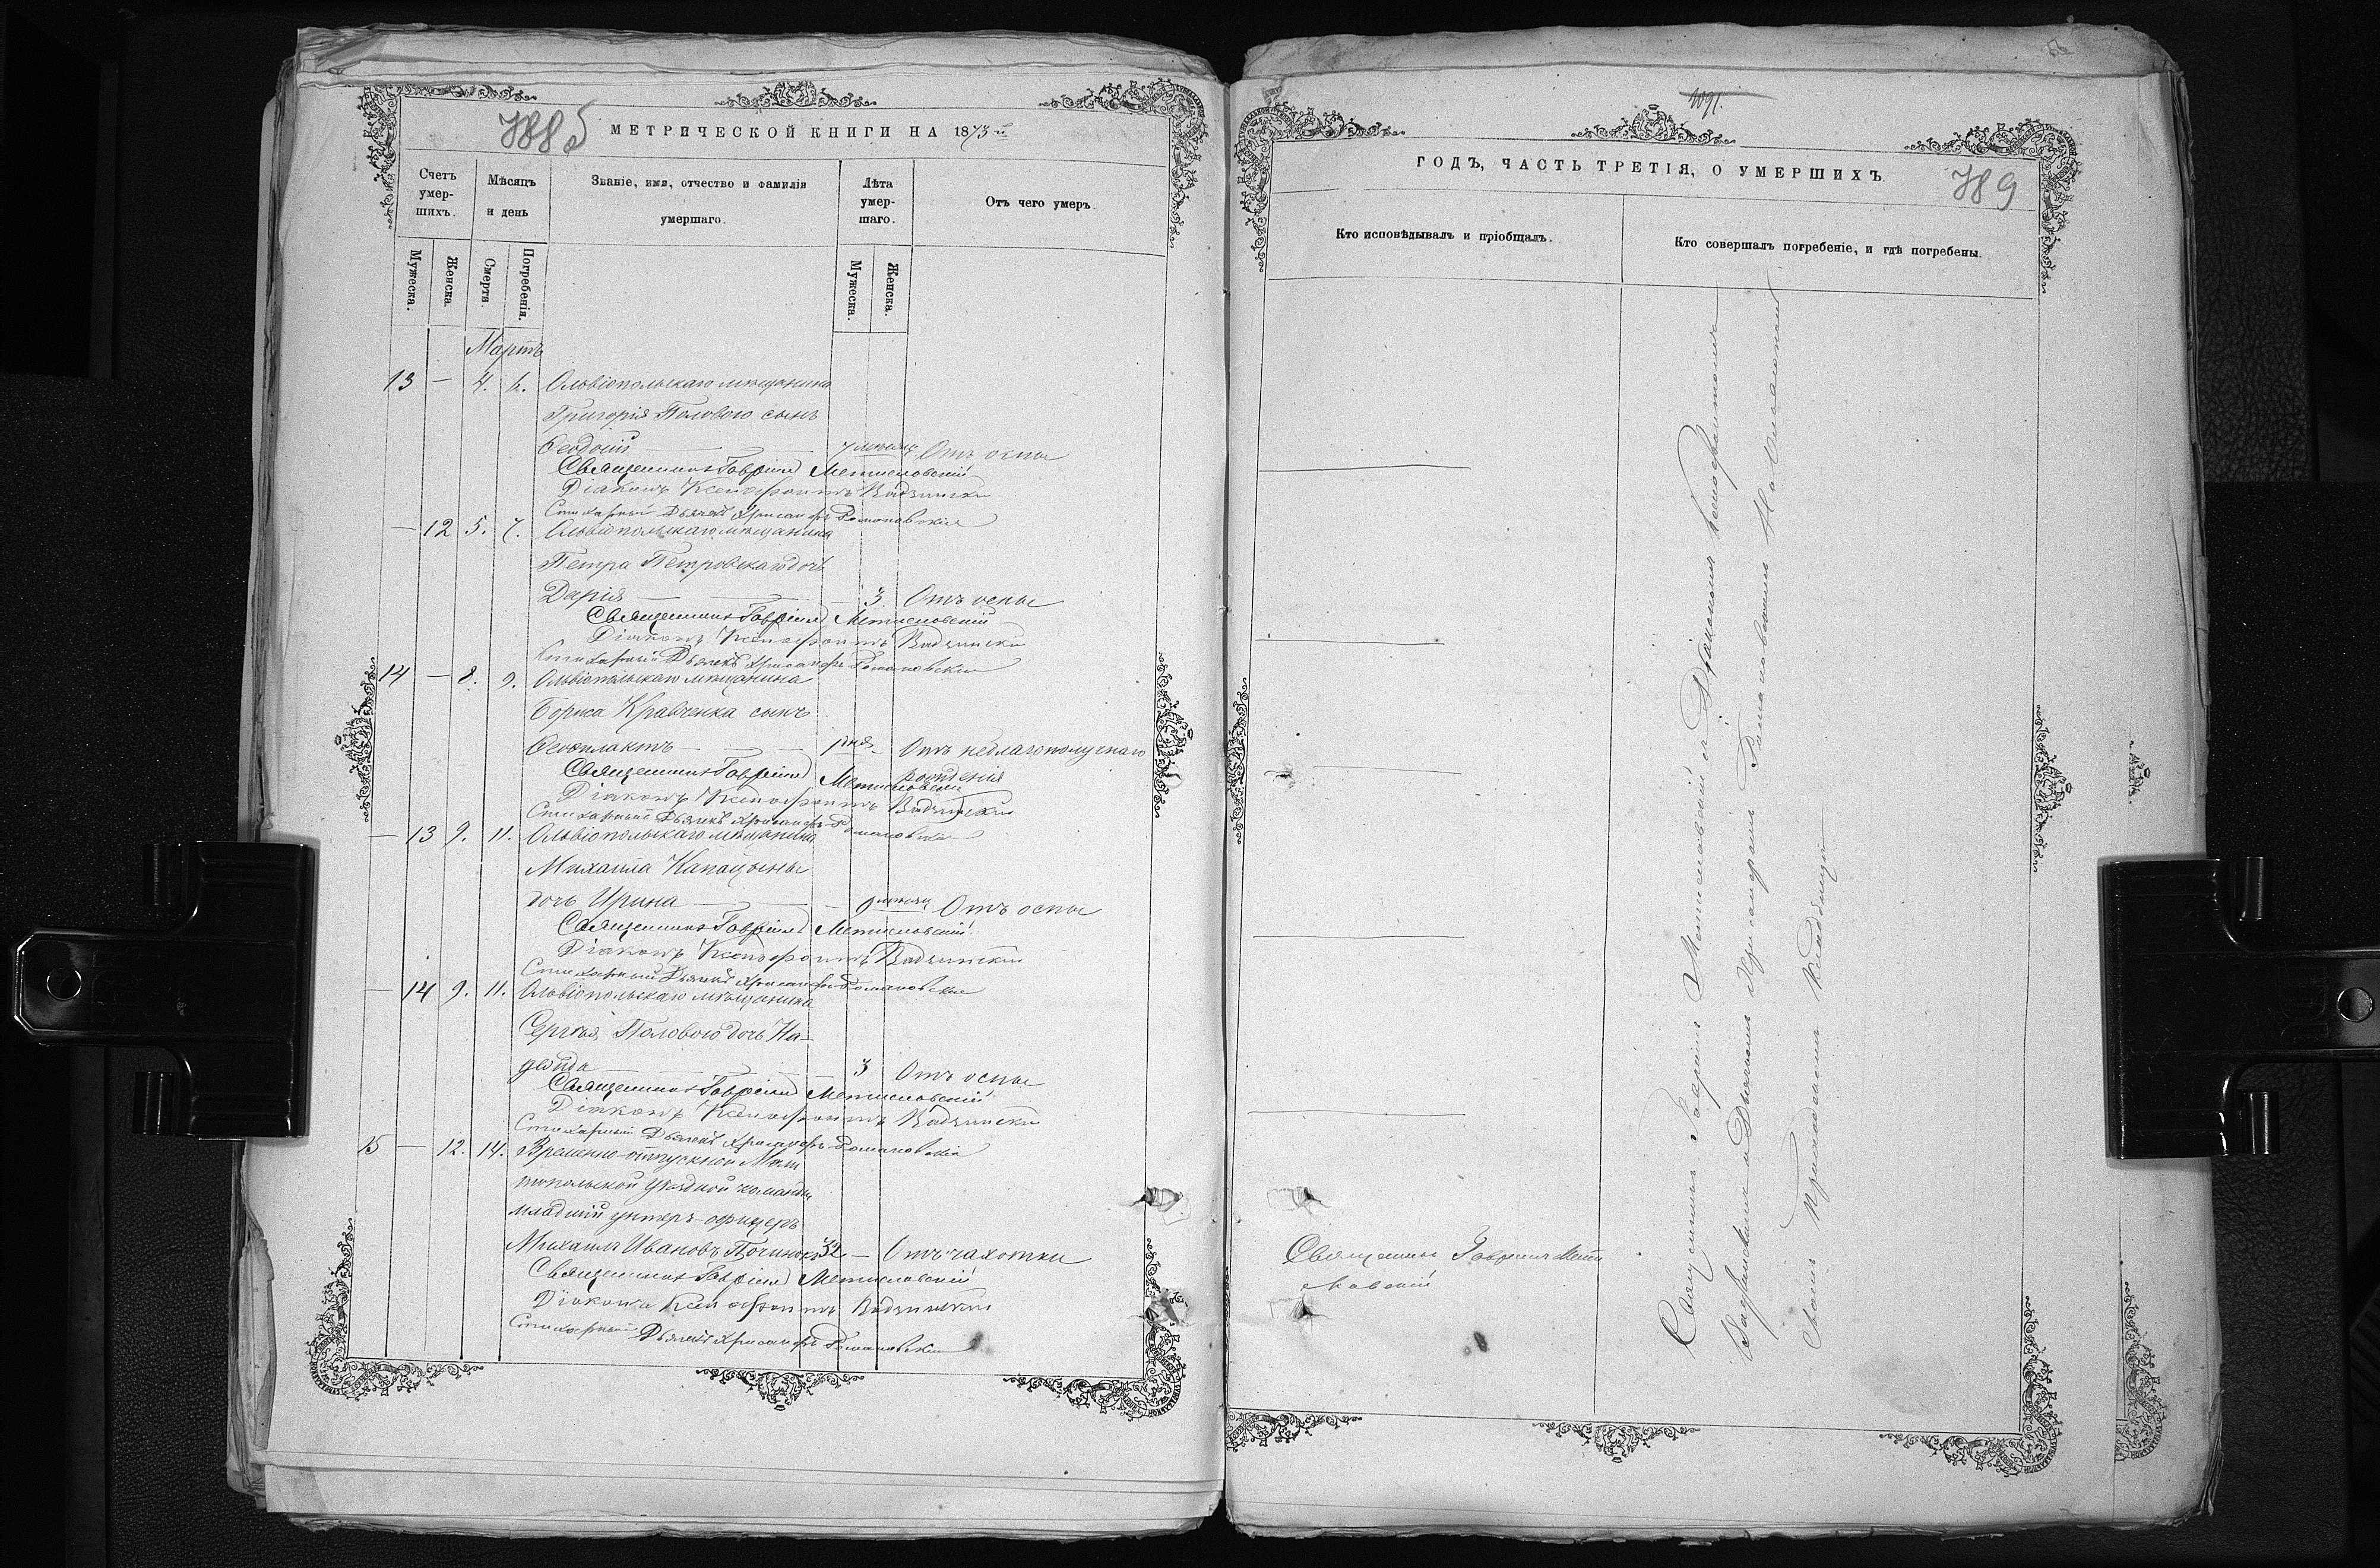 788 б
МЕТРИЧЕСКОЙ КНИГИ НА 1873 й
Счетъ умер-шихъ.
Мѣсяцъ и день
Званіе, имя, отчество и фамилія умершаго.
Лѣта умер-шаго.
Отъ чего умеръ.
Мужеска.
Женска.
Смерти.
Погребенія.
Мужеска.
Женска.
Мартъ
13 — 4. 6. Ольвіопольскаго мѣщанина
Григорія Полового сынъ
Феодосій — 7 мѣсяц Отъ оспы
Священникъ Гавріилъ Метиславскій
Діаконъ Ксенофонтъ Вадзинскій
Стихарный Дьячекъ Хрисанфъ Романовскій
— 12 5. 7. Ольвіопольскаго мѣщанина
Петра Петровскаго дочь
Дарія — 3 Отъ оспы
Священникъ Гавріилъ Метиславскій
Діаконъ Ксенофонтъ Вадзинскій
Стихарный Дьячекъ Хрисанфъ Романовскій
14 — 8. 9. Ольвіопольскаго мѣщанина
Бориса Кравченка сынъ
Феофилактъ — дня — Отъ неблагополучнаго
рожденія
Священникъ Гавріилъ Метиславскій
Діаконъ Ксенофонтъ Вадзинскій
Стихарный Дьячекъ Хрисанфъ Романовскій
— 13 9. 11. Ольвіопольскаго мѣщанина
Михаила Капацыны
дочь Ирина — 9 мѣсяц Отъ оспы
Священникъ Гавріилъ Метиславскій
Діаконъ Ксенофонтъ Вадзинскій
Стихарный Дьячекъ Хрисанфъ Романовскій
— 14 9. 11. Ольвіопольскаго мѣщанина
Сергѣя Полового дочь На-
дѣжда — 3 Отъ оспы
Священникъ Гавріилъ Метиславскій
Діаконъ Ксенофонтъ Вадзинскій
Стихарный Дьячекъ Хрисанфъ Романовскій
15 — 12. 14. Временно-отпускной Мели
топольской уѣздной команды
младшій унтеръ-офицеръ
Михаилъ Ивановъ Починокъ 32 — Отъ чахотки
Священникъ Гавріилъ Метиславскій
Діаконъ Ксенофонтъ Вадзинскій
Стихарный Дьячекъ Хрисанфъ Романовскій
1091.
ГОДЪ, ЧАСТЬ ТРЕТІЯ, О УМЕРШИХЪ.
789
Кто исповѣдывалъ и пріобщалъ.
Кто совершалъ погребеніе, и гдѣ погребены.
Священникъ Гавріилъ Мети
славскій
Священникъ Гавріилъ Метиславскій съ Діакономъ Ксенофонтомъ
Вадзинскимъ и Дьячкомъ Хрисанфомъ Романовскимъ На Отведенномъ
Своемъ Приходскомъ Кладбищѣ